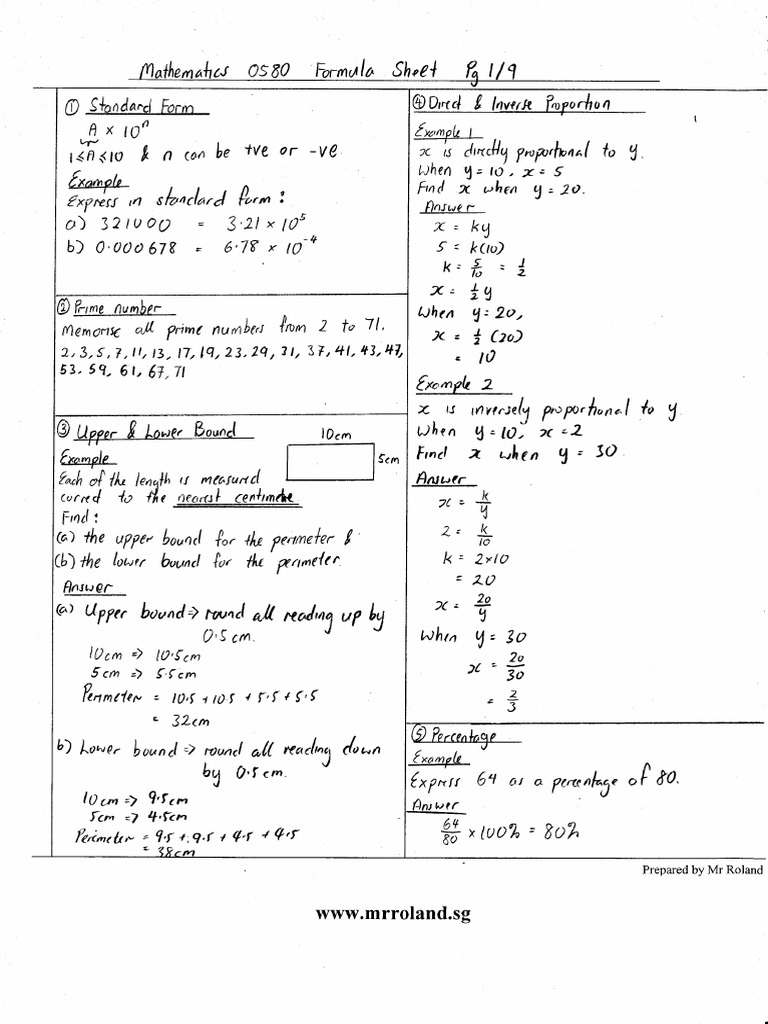 Mathematics 0580 Formula Sheet Pg 1/9
① Standard Form
A × 10ⁿ
1≤A≤10 & n can be +ve or -ve
Example
Express in standard form:
a) 321000 = 3.21 × 10⁵
b) 0.000678 = 6.78 × 10⁻⁴
② Prime number
Memorise all prime numbers from 2 to 71.
2,3,5,7,11,13,17,19,23.29,31,37,41,43,47,
53.59,61,67,71
③ Upper & Lower Bound
10cm
5cm
Example
Each of the length is measured
correct to the nearest centimetre
Find:
(a) the upper bound for the perimeter &
(b) the lower bound for the perimeter.
Answer
(a) Upper bound => round all reading up by
0.5cm.
10cm => 10.5cm
5cm => 5.5cm
Perimeter = 10.5 + 10.5 + 5.5 + 5.5
= 32cm
b) Lower bound => round all reading down
by 0.5cm.
10cm => 9.5cm
5cm => 4.5cm
Perimeter = 9.5 + 9.5 + 4.5 + 4.5
= 38cm
④ Direct & Inverse Proportion
1
Example 1
x is directly proportional to y.
When y=10, x=5
Find x when y=20.
Answer
x = ky
5 = k(10)
k = 5/10 = 1/2
x = 1/2 y
When y=20,
x = 1/2 (20)
= 10
Example 2
x is inversely proportional to y
When y=10, x=2
Find x when y=30
Answer
x = k/y
2 = k/10
k = 2×10
= 20
x = 20/y
When y=30
x = 20/30
= 2/3
⑤ Percentage
Example
Express 64 as a percentage of 80.
Answer
64/80 × 100% = 80%
Prepared by Mr Roland
www.mrroland.sg